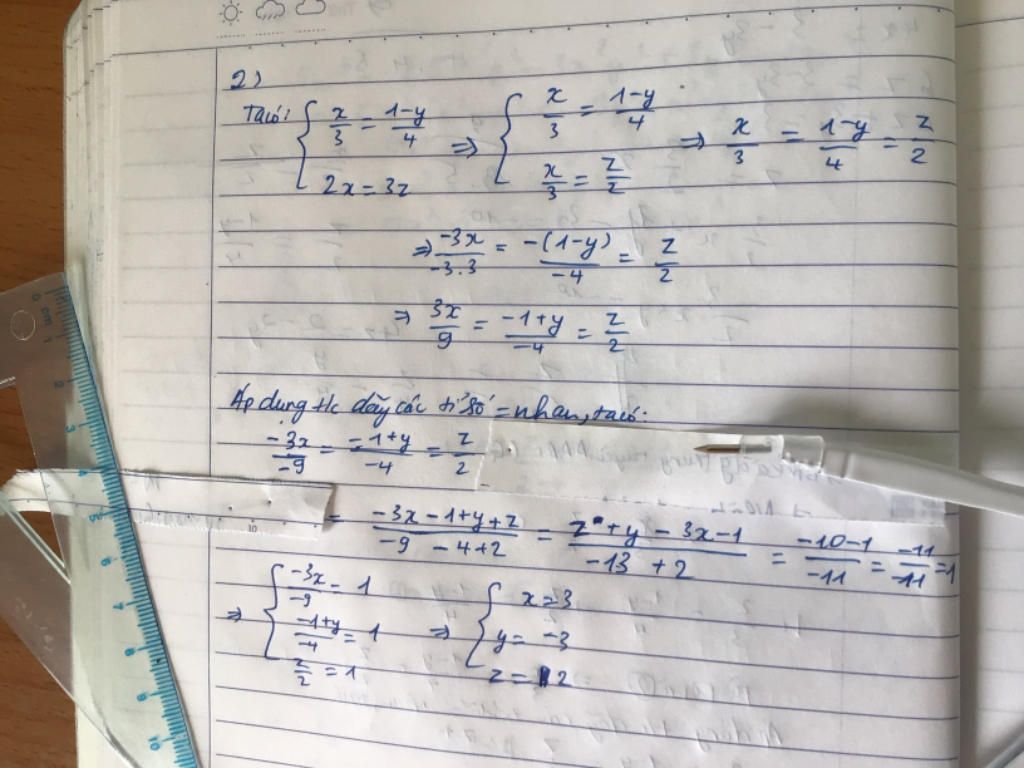 2)
Ta có: { x/3 = 1-y/4 ⇒ { x/3 = 1-y/4 ⇒ x/3 = 1-y/4 = z/2
2x = 3z x/3 = z/2
⇒ -3x/-3.3 = -(1-y)/-4 = z/2
⇒ 3x/9 = -1+y/-4 = z/2
Áp dụng t/c dãy các tỉ số = nhau, ta có:
-3x/-9 = -1+y/-4 = z/2
= -3x-1+y+z/-9-4+2 = z+y-3x-1/-13+2 = -10-1/-11 = -11/-11 = 1
⇒ { -3x/-9 = 1 ⇒ { x = 3
-1+y/-4 = 1 y = -3
z/2 = 1 z = 2
0 cm 1 2 3 4 5 6 7 8 9 10